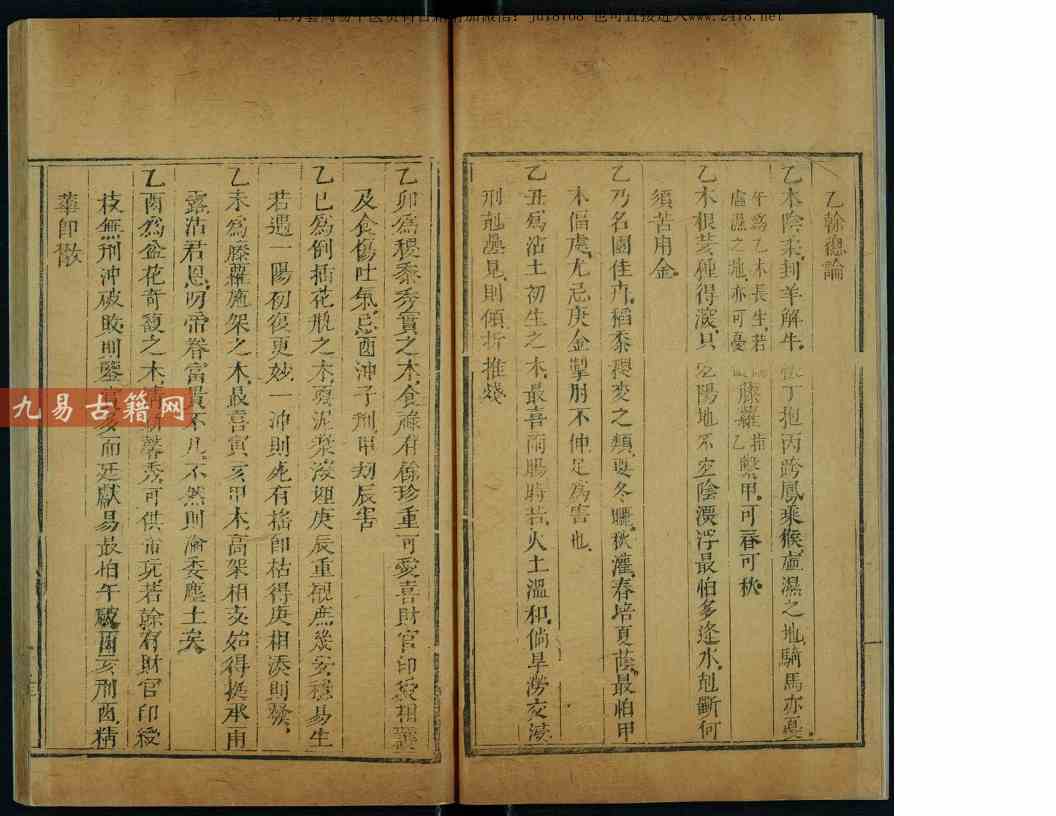 也可直接进入www.2478.net
乙榦總論
乙木陰柔刲羊解牛懷丁抱丙跨鳳乘猴虛濕之地騎馬亦憂
午為乙木長生若
虛濕之地亦可憂
藤蘿繫甲可春可秋
乙木根荄種得深只 陽地不 陰漂浮最怕多逢水尅斷何
須苦用金
乃名園佳卉稻黍稷麥之類要冬曬秋灌春培夏蔭最怕甲
木偪處尤忌庚金掣肘不伸足為害也
乙丑為沾土初生之木最喜雨腸時若火土溫和倘旱澇交浸
刑尅壘見則傾折推殘
乙卯為稷黍秀實之木食祿有餘珍重可愛喜財官印綬相
及食傷吐氣忌酉沖子刑甲刼辰害
乙巳為倒插花瓶之木 泥漿浸埋庚辰重觀庶幾安穩易生
若遇一陽初復更妙一沖則死有搖即枯得庚相湊則發
乙未為藤蘿施架之木最喜寅亥甲木高架相支始得挺承雨
露沾君恩明帝眷富貴不凡不然則淪委塵土矣
乙酉為盆花奇馥之木 馨秀可供市玩若榦有財官印綬
枝無刑沖破敗則 而廷獻易最怕午破酉亥刑酉精
華即散
九易古籍网